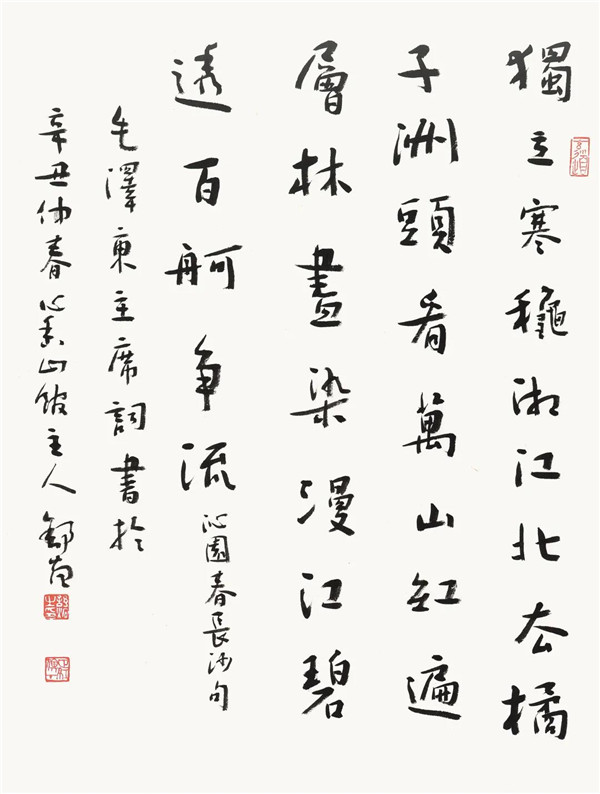 獨立寒龝湘江北去橘
子洲頭看萬山紅遍
層林盡染漫江碧
透百舸争流 沁園春長沙句
毛澤東主席詞書於
辛丑仲春心香山館主人